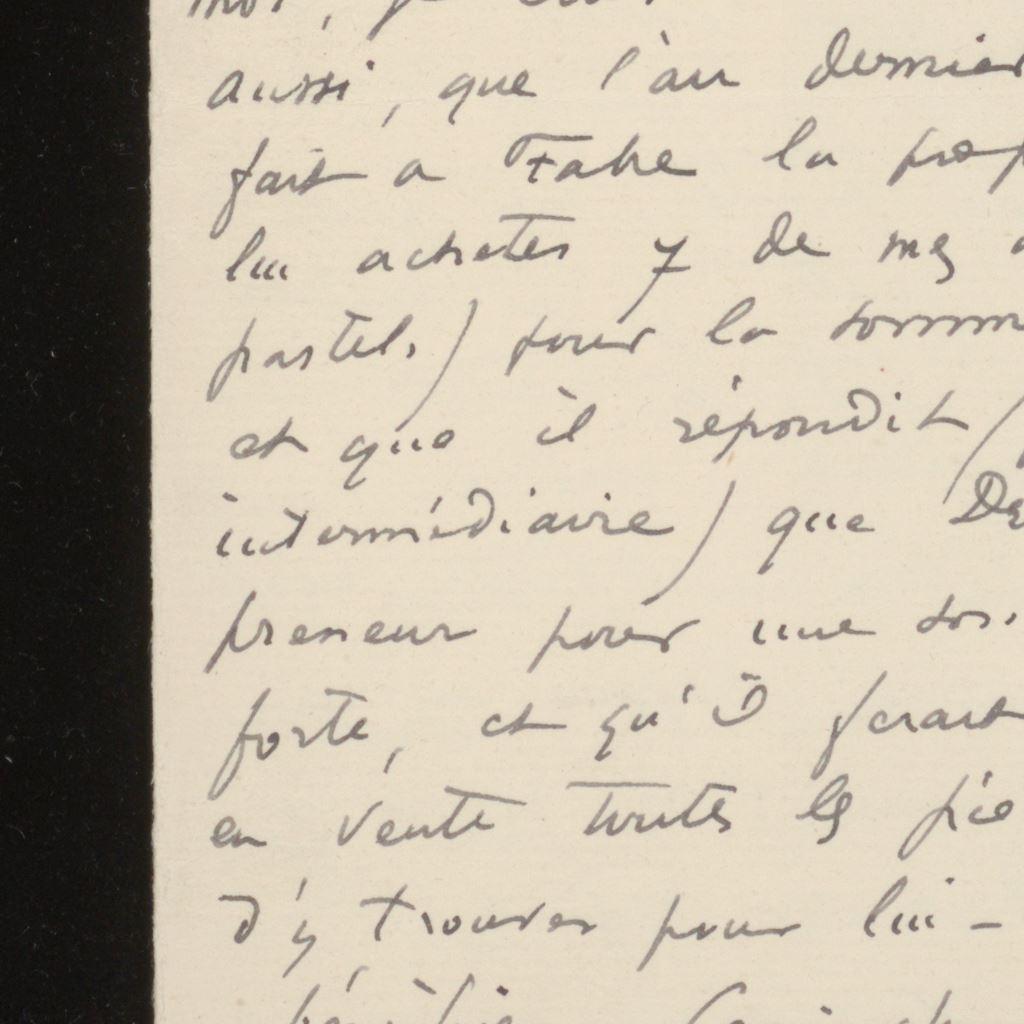 aussi, que l'an dernier
fait a Fabre la prop
lui acheter 7 de mes
pastels) pour la somm
et que il répondit (
intermédiaire) que De
preneur pour une
forte, et qu'il ferait
en vente toutes les piè
d'y trouver pour lui-